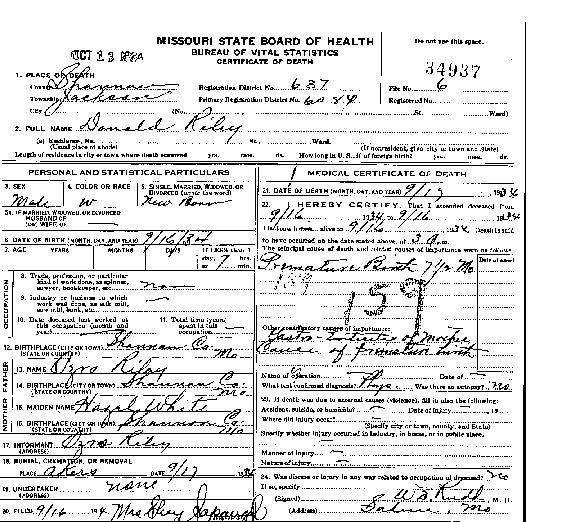 OCT 23 1934
MISSOURI STATE BOARD OF HEALTH
BUREAU OF VITAL STATISTICS
CERTIFICATE OF DEATH
Do not use this space.
34937
1. PLACE OF DEATH
County Shannon Registration District No. 637 File No. 6
Township Jackson Primary Registration District No. Registered No.
City (No. St. Ward)
2. FULL NAME Donald Riley
(a) Residence, No. St. Ward.
(Usual place of abode) (If nonresident, give city or town and State)
Length of residence in city or town where death occurred yrs. mos. ds. How long in U. S., if of foreign birth? yrs. mos. ds.
PERSONAL AND STATISTICAL PARTICULARS
3. SEX 4. COLOR OR RACE 5. SINGLE, MARRIED, WIDOWED, OR DIVORCED (write the word)
Male W New Born
5A. IF MARRIED, WIDOWED, OR DIVORCED
HUSBAND OF
(OR) WIFE OF
6. DATE OF BIRTH (MONTH, DAY, AND YEAR) 9/16/34
7. AGE YEARS MONTHS DAYS If LESS than 1 day, 7 hrs. or min.
OCCUPATION
8. Trade, profession, or particular kind of work done, as spinner, sawyer, bookkeeper, etc.
9. Industry or business in which work was done, as silk mill, saw mill, bank, etc.
10. Date deceased last worked at this occupation (month and year) 11. Total time (years) spent in this occupation
12. BIRTHPLACE (CITY OR TOWN) Shannon Co.
(STATE OR COUNTRY) Mo
FATHER
13. NAME Ozro Riley
14. BIRTHPLACE (CITY OR TOWN) Shannon Co.
(STATE OR COUNTRY) Mo
MOTHER
15. MAIDEN NAME Hazel White
16. BIRTHPLACE (CITY OR TOWN) Shannon Co.
(STATE OR COUNTRY) Mo
17. INFORMANT Ozro Riley
(ADDRESS)
18. BURIAL, CREMATION, OR REMOVAL
PLACE Akers DATE 9/17 1934
19. UNDERTAKER none
(ADDRESS)
20. FILED 9/16 194 Mrs
MEDICAL CERTIFICATE OF DEATH
21. DATE OF DEATH (MONTH, DAY, AND YEAR) 9/17 1934
22. I HEREBY CERTIFY, That I attended deceased from
9/16 1934, 9/16 1934
I last saw h alive on 9/16 1934 Death is said
to have occurred on the date stated above, at 3 a.m.
The principal cause of death and related causes of importance were as follows:
Date of onset
Premature Birth 7 1/2 Mo
159
159
Other contributory causes of importance:
of Mother
Cause of premature birth
Name of operation Date of
What test confirmed diagnosis? Phys. Was there an autopsy? no
23. If death was due to external causes (violence), fill in also the following:
Accident, suicide, or homicide? Date of injury 19
Where did injury occur?
(Specify city or town, county, and State)
Specify whether injury occurred in industry, in home, or in public place.
Manner of injury
Nature of injury
24. Was disease or injury in any way related to occupation of deceased? no
If so, specify
(Signed) M. D.
(Address) Salem, Mo